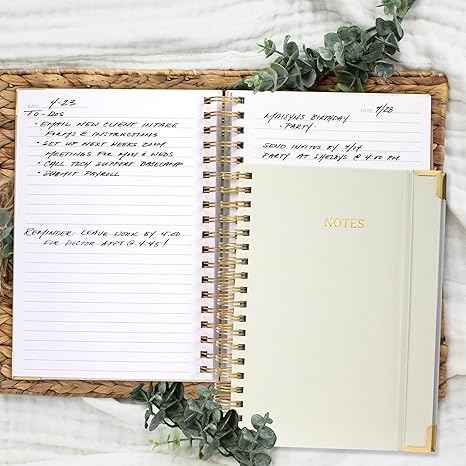 4-23
TO-DOS
• EMAIL NEW CLIENT INTAKE
FORMS & INSTRUCTIONS
• SET UP NEXT WEEKS ZOOM
MEETINGS FOR MON & WEDS
• CALL TECH SUPPORT
• SUBMIT PAYROLL
REMINDER: LEAVE WORK BY 4:00
FOR DOCTOR APPT @ 4:45!
DATE 4/28
BIRTHDAY
- PARTY
SEND INVITES BY 4/14
PARTY AT SHELBYS @ 4:00 PM
NOTES